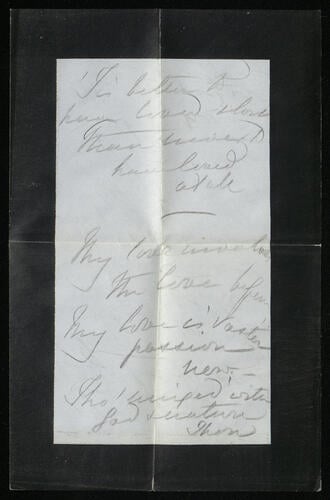 'Tis better to
have loved & lost
Than never
have loved
at all
My love involves
the love before
My love is vaster
passion
now –
Tho' mixed with
God & nature
Thou